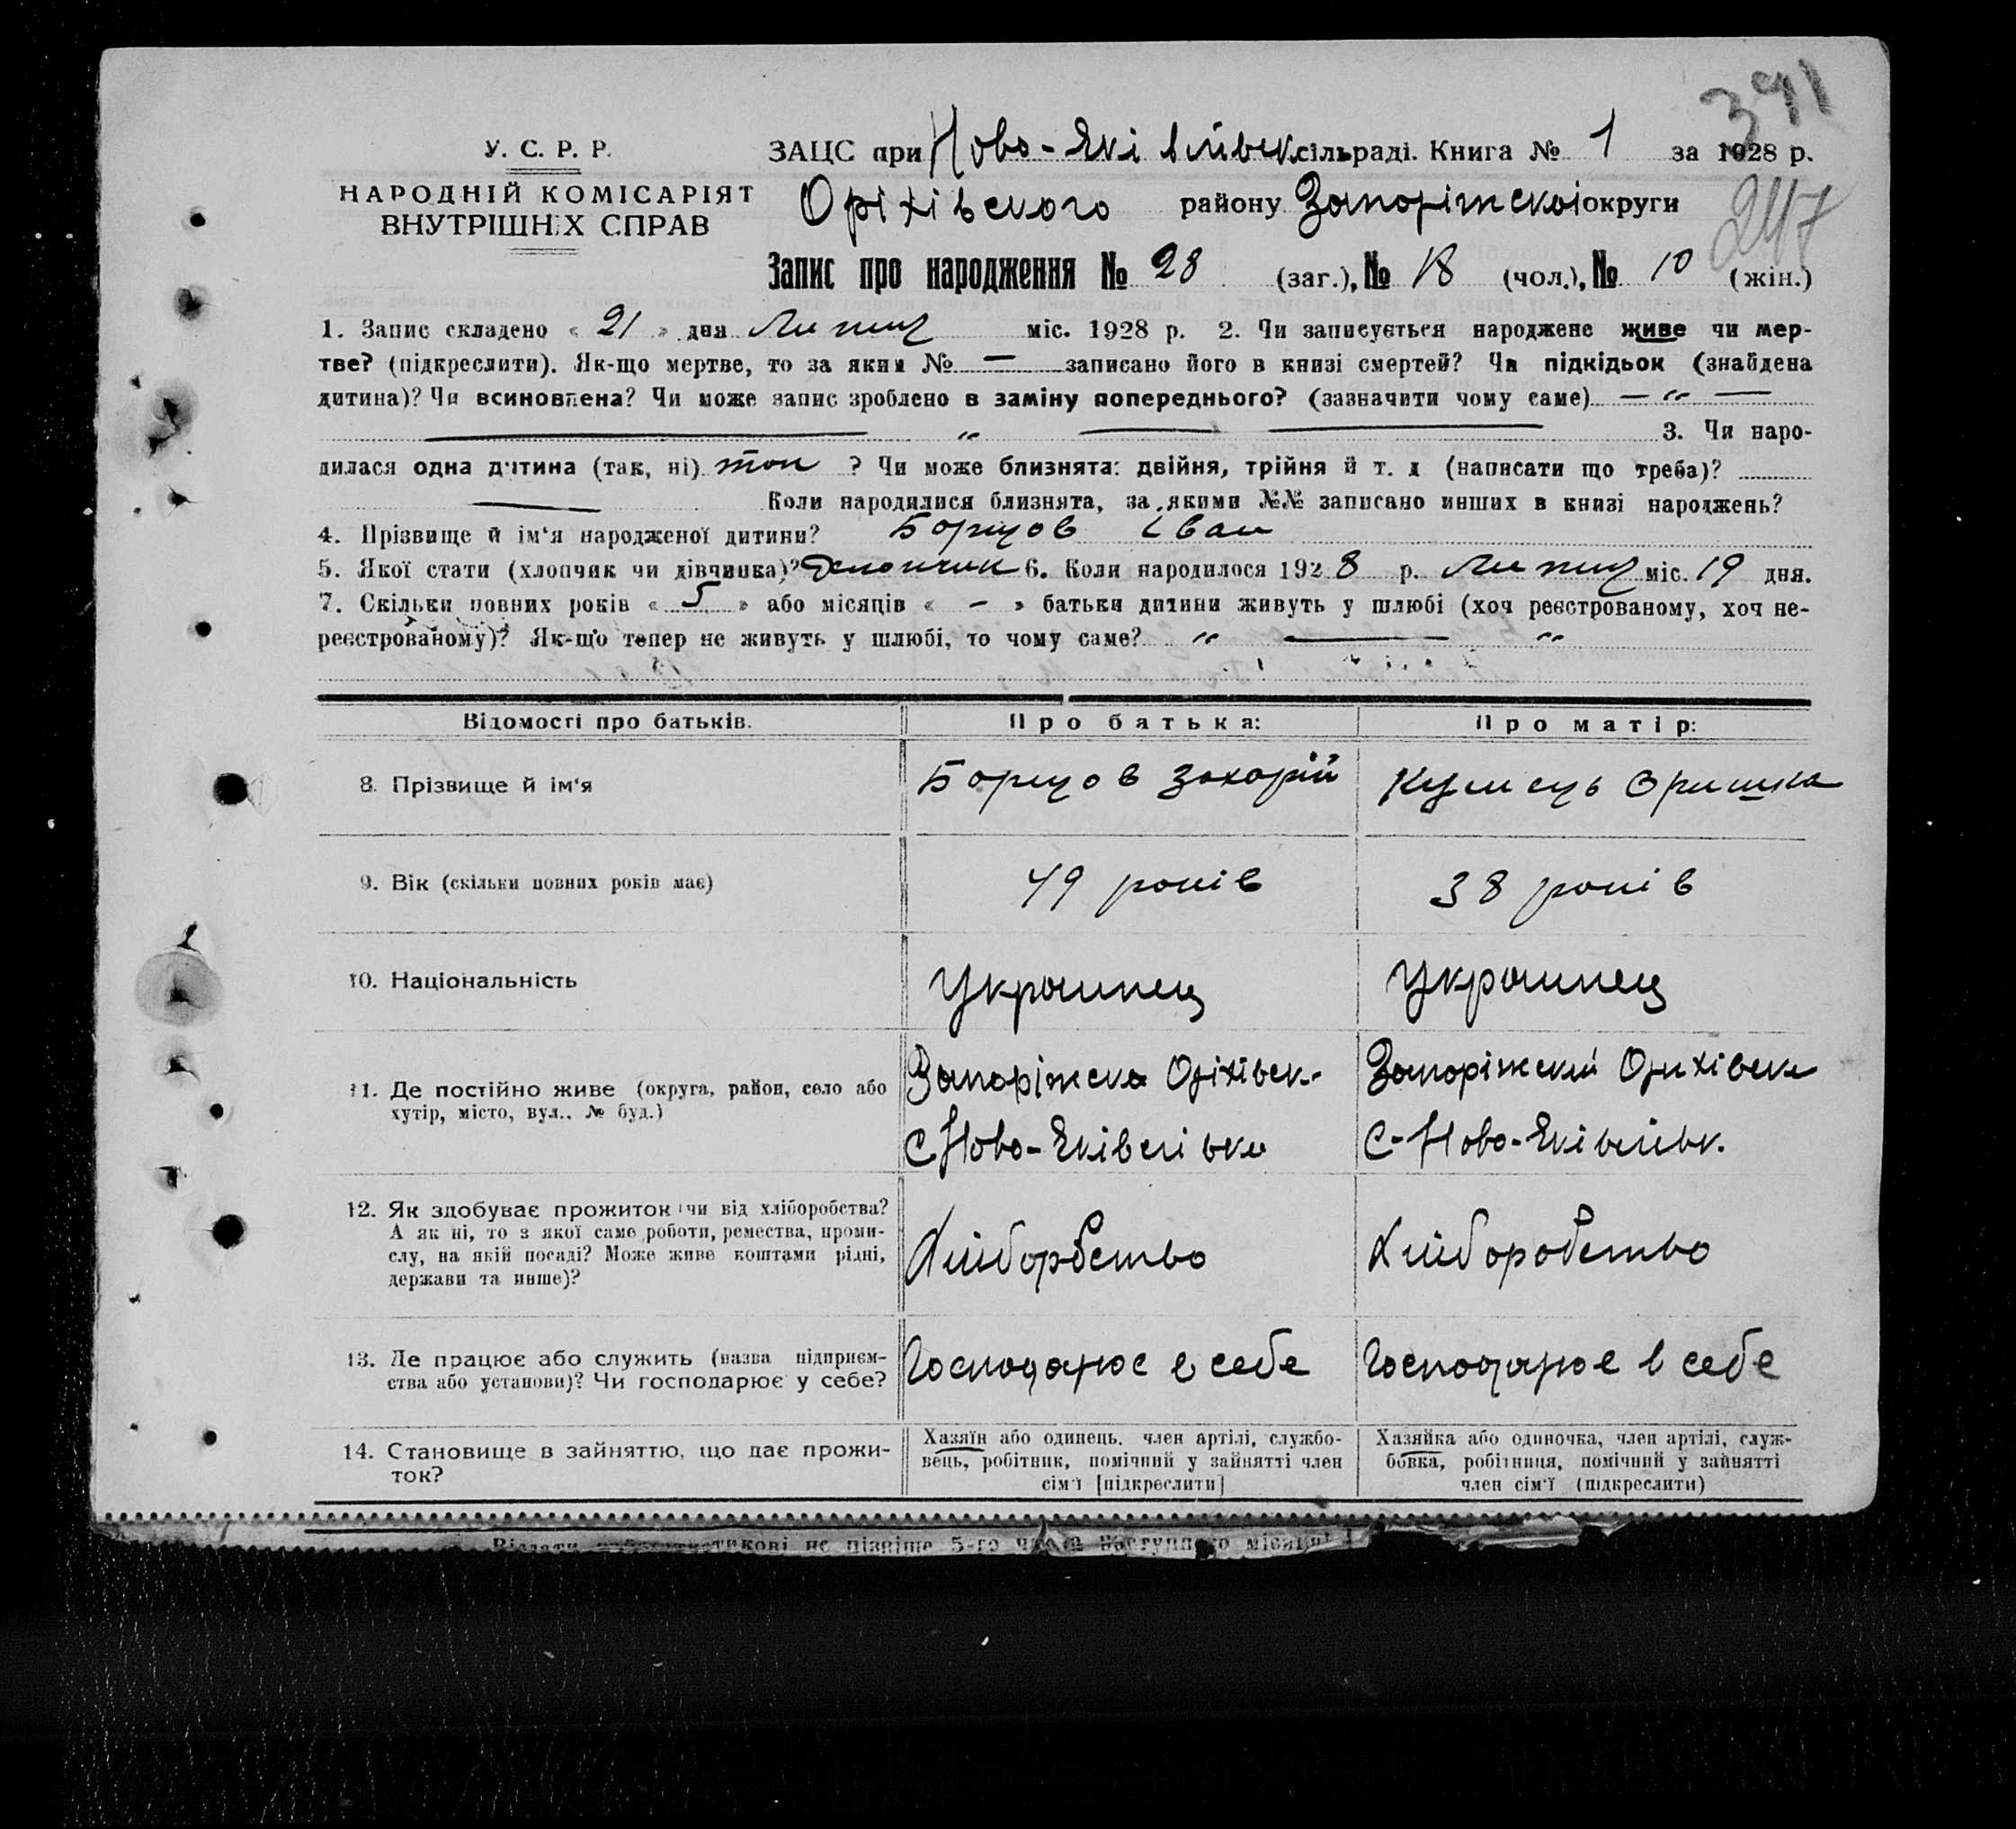 391
У. С. Р. Р.
НАРОДНІЙ КОМІСАРІЯТ
ВНУТРІШНІХ СПРАВ
ЗАЦС при Ново-Яківлівск. сільраді. Книга № 1 за 1928 р.
Оріхівського району Запоріжскої округи
247
Запис про народження № 28 (заг.), № 18 (чол.), № 10 (жін.)
1. Запис складено « 21 » дня Липця міс. 1928 р. 2. Чи записується народжене живе чи мер-
тве? (підкреслити). Як-що мертве, то за яким № — записано його в книзі смертей? Чи підкідьок (знайдена
дитина)? Чи всиновлена? Чи може запис зроблено в заміну попереднього? (зазначити чому саме) — „ —
— „ — — 3. Чи наро-
дилася одна дитина (так, ні) так ? Чи може близнята: двійня, трійня й т. д (написати що треба)?
— Коли народилися близнята, за якими №№ записано инших в книзі народжень?
4. Прізвище й ім‘я народженої дитини? Борцов Іван
5. Якої стати (хлопчик чи дівчинка)? Хлопчик 6. Коли народилося 1928 р. Липця міс. 19 дня.
7. Скільки повних років « 5 » або місяців « - » батьки дитини живуть у шлюбі (хоч реєстрованому, хоч не-
реєстрованому)? Як-що тепер не живуть у шлюбі, то чому саме? „ — „
Відомості про батьків. Про батька: Про матір:
8. Прізвище й ім‘я Борцов Захарій Оришка
9. Вік (скільки повних років має) 49 років 38 років
10. Національність Украинец Украинец
11. Де постійно живе (округа, район, село або
хутір, місто, вул., № буд.)
Запоріжска Оріхівск.
С Ново-Яківлівка
Запоріжский Орихівск
С-Ново-Яківлівк.
12. Як здобуває прожиток: чи від хліборобства?
А як ні, то з якої саме роботи, ремества, проми-
слу, на якій посаді? Може живе коштами рідні,
держави та инше)?
Хлібороbство
Хліборобство
13. Де працює або служить (назва підприєм-
ства або установи)? Чи господарює у себе?
Господарює в себе
Господарює в себе
14. Становище в зайняттю, що дає прожи-
ток?
Хазяїн або одинець, член артілі, службо-
вець, робітник, помічний у зайнятті член
сім‘ї [підкреслити]
Хазяйка або одиночка, член артілі, служ-
бовка, робітниця, помічний у зайнятті
член сім‘ї (підкреслити)
не пізніше 5-го числа наступного місяця!